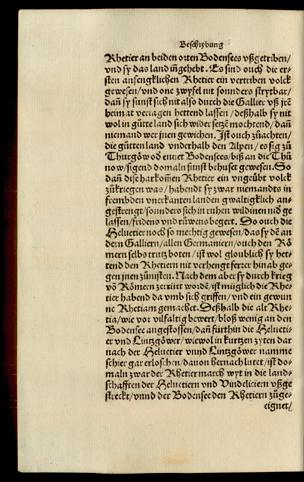 Beschrybung
Rhetier an beiden orten Bodensees vßgetriben/
vnd sy das land ingehebt. Es sind ouch die er-
sten ansengklichen Rhetier ein vertriben volck
gewesen/ vnd one zwyfel nit sonnders strytbar/
dañ sy sunst sich nit also durch die Gallier vß jrē
heimat veriagen hettend lassen/ deßhalb sy nit
wol in gůtte land sich wider setzē mochtend/ dañ
niemand wer jnen gewichen. Ist ouch zůachten/
die gůtten land vnderhalb den Alpen/ es sig zů
Thurgöw oder ennet Bodensees/ biß an die Thů
now/ sigend domaln sunst behuset gewesen. So
dañ die harkomēn Rhetier ein vngeübt volck
zůkriegen was/ habend sy zwar niemandts in
frembden vnerkanten landen gwaltigklich an-
gestrengt/ sonnders sich in ruhen wildinen nidge
lassen/ fridens vnd růwens begert. So ouch die
Heluetier noch so mechtig gewesen/ das sy dē an
dern Galliern/ allen Germaniern/ ouch den Rö
mern selbs trutz boten/ ist wol gloublich sy het-
tend den Rhetiern nit verhengt ferner hinab ge-
gen jnen zůnisten. Nach dem aber sy durch krieg
vō Römern zerrütt wordē/ ist müglich die Rhe-
tier habend da vmb sich griffen/ vnd ein gewun
ne Rhetiam gemachet. Deßhalb die alt Rhe-
tia/ wie vor vilfaltig bewert/ bloß wenig an den
Bodensee angestossen/ dañ fürthin die Heluetij-
er vnd Lintzgöwer/ wiewol in kurtzen zyten dar
nach der Heluetier vnnd Lintzgöwer namme
schier gar erloschen/ dauon hernach lutet/ ist do-
maln zwar der Rhetier march wyt in die land-
schafften der Heluetiern vnd Vindeliciern vßge
streckt/ vnnd der Bodensee den Rhetiern zůge-
eignet/